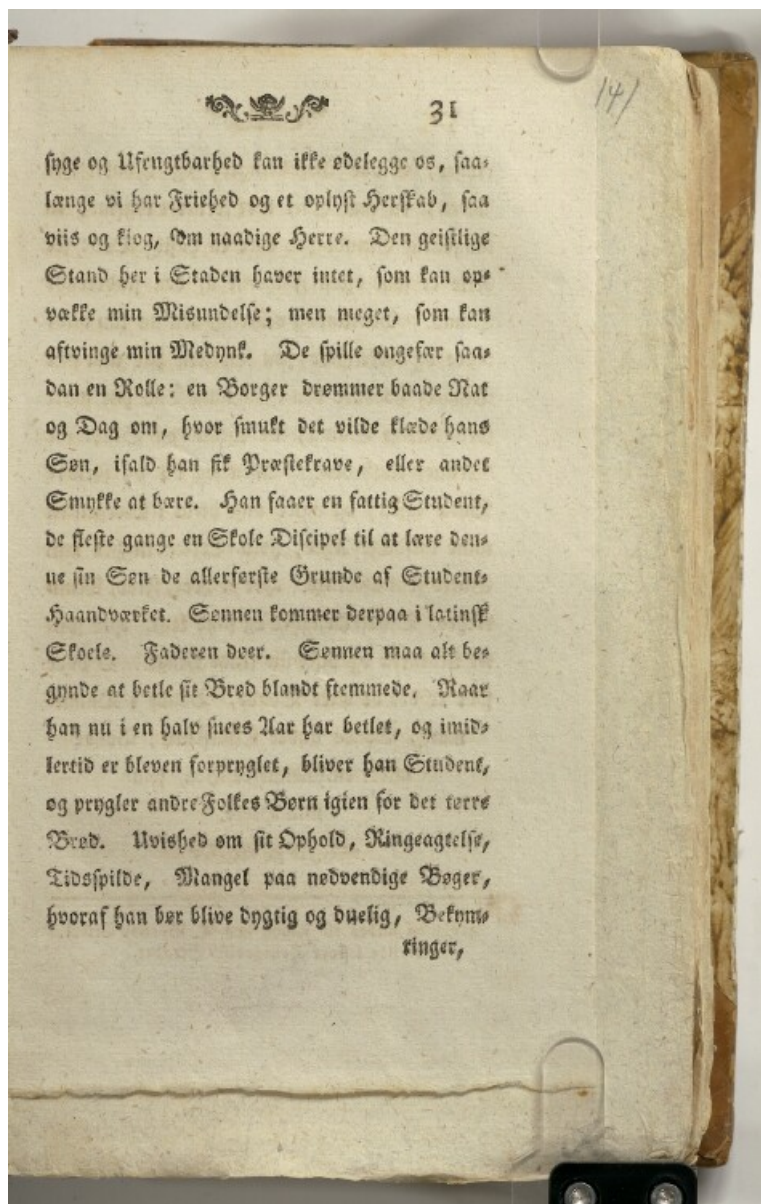 31
141
syge og Ufrugtbarhed kan ikke ødelegge os, saa-
længe vi har Friehed og et oplyst Herskab, saa
viis og klog, som naadige Herre. Den geistlige
Stand her i Staden haver intet, som kan op-
vække min Misundelse; men meget, som kan
aftvinge min Medynk. De spille ongefær saa-
dan en Rolle: en Borger drømmer baade Nat
og Dag om, hvor smukt det vilde klæde hans
Søn, ifald han fik Præstekrave, eller andet
Smykke at bære. Han faaer en fattig Student,
de fleste gange en Skole Discipel til at lære den-
ne sin Søn de allerførste Grunde af Student-
Haandværket. Sønnen kommer derpaa i latinsk
Skoele. Faderen døer. Sønnen maa alt be-
gynde at betle sit Brød blandt fremmede. Naar
han nu i en halv snees Aar har betlet, og imid-
lertid er bleven forpryglet, bliver han Student,
og prygler andre Folkes Børn igien for det tørre
Brød. Uvished om sit Ophold, Ringeagtelse,
Tidsspilde, Mangel paa nødvendige Bøger,
hvoraf han bør blive dygtig og duelig, Bekym-
ringer,